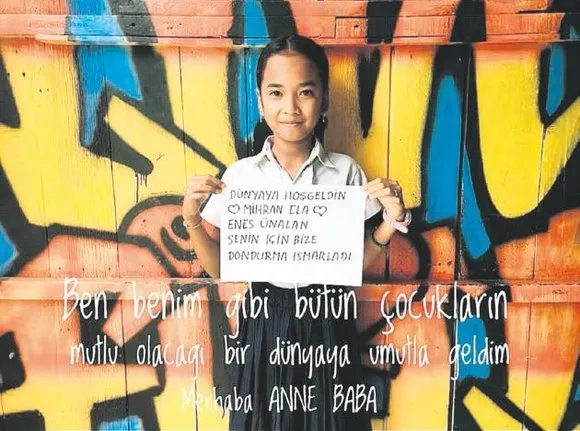 DÜNYAYA HOŞGELDİN
♡ MİHRAN ELA ♡
ENES ÜNALAN
SENİN İÇİN BİZE
DONDURMA ISMARLADI
Ben benim gibi bütün çocukların
mutlu olacağı bir dünyaya umutla geldim
Merhaba ANNE BABA